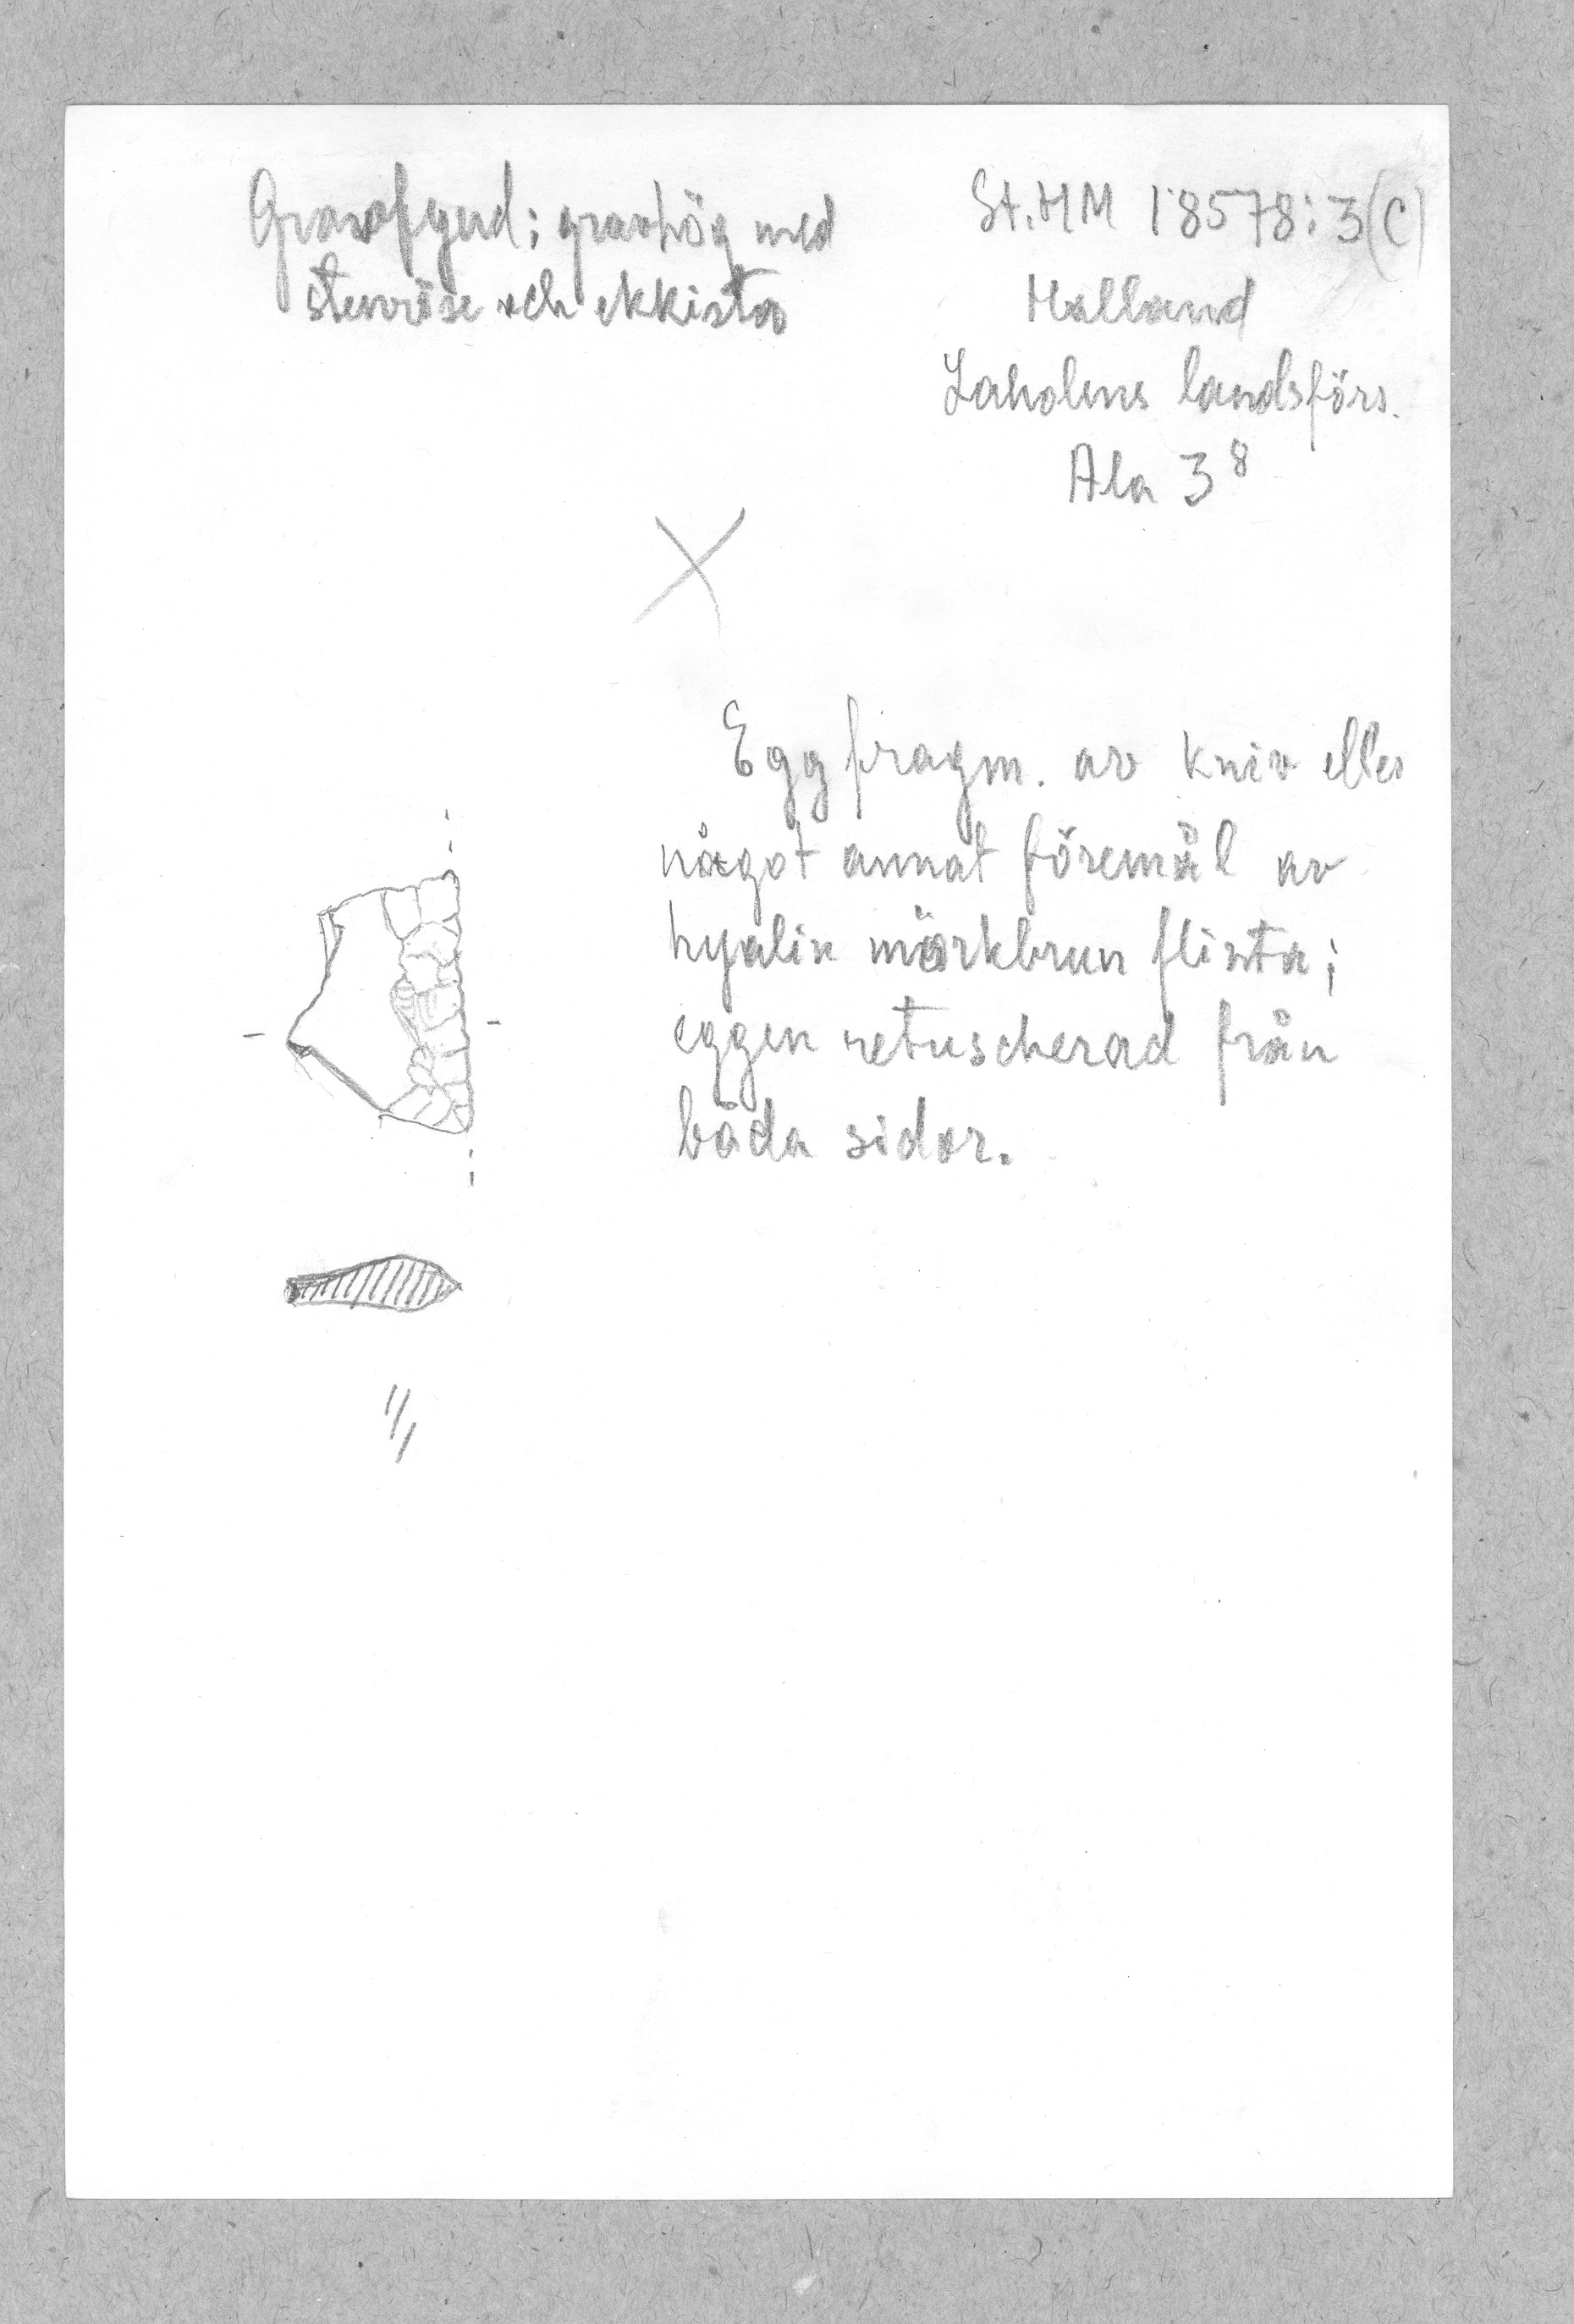 Gravfynd; gravhög med
stenröse och ekkista
St.HM 18578:3(C)
Halland
Laholms landsförs.
Ala 3⁸
Eggfragm. av kniv eller
något annat föremål av
hyalin mörkbrun flinta;
eggen retuscherad från
båda sidor.
1/1